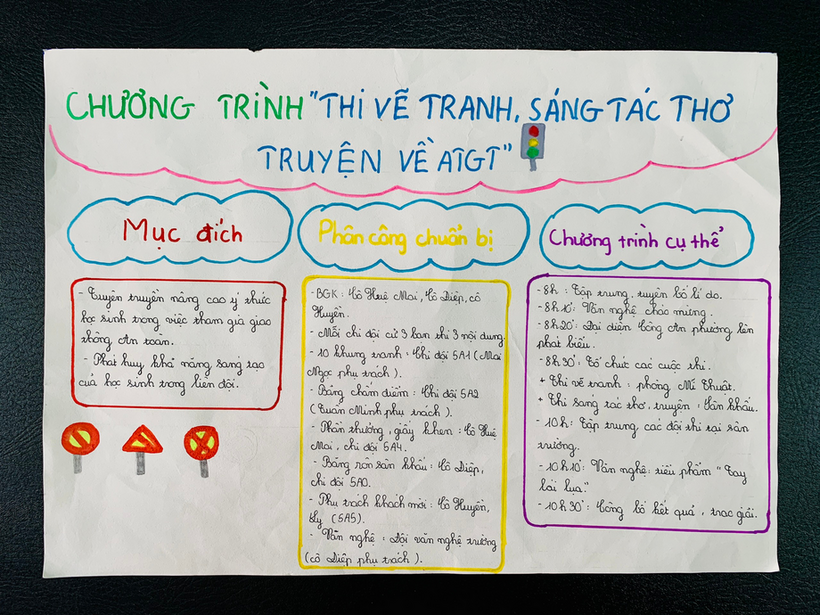 CHƯƠNG TRÌNH "THI VẼ TRANH, SÁNG TÁC THƠ
TRUYỆN VỀ ATGT"
Mục đích
- Tuyên truyền nâng cao ý thức
học sinh trong việc tham gia giao
thông An toàn.
- Phát huy khả năng sáng tạo
của học sinh trong liên đội.
Phân công chuẩn bị
- BGK : Cô Huệ Mai, Cô Diệp, cô
Huyền.
- Mỗi chi đội cử 3 bạn thi 3 nội dung.
- 10 khung tranh : Chi đội 5A1 (Mai
Ngọc phụ trách).
- Bảng chấm điểm : Chi đội 5A2
(Tuấn Minh phụ trách).
- Phần thưởng, giấy khen : Cô Huệ
Mai, chi đội 5A4.
- Băng rôn sân khấu : Cô Diệp,
chi đội 5A0.
- Phụ trách khách mời : Cô Huyền,
(5A5).
- Văn nghệ : Đội văn nghệ trường
(cô Diệp phụ trách).
Chương trình cụ thể
- 8h : Tập trung, tuyên bố lí do.
- 8h10' : Văn nghệ chào mừng.
- 8h20' : Đại diện Công An phường lên
phát biểu.
- 8h30' : Tổ chức các cuộc thi.
+ Thi vẽ tranh : phòng Mĩ Thuật.
+ Thi sáng tác thơ, truyện : Sân khấu.
- 10h : Tập trung các đội thi tại sân
trường.
- 10h10' : Văn nghệ : tiểu phẩm "Tay
lái lụa."
- 10h30' : Công bố kết quả, trao giải.